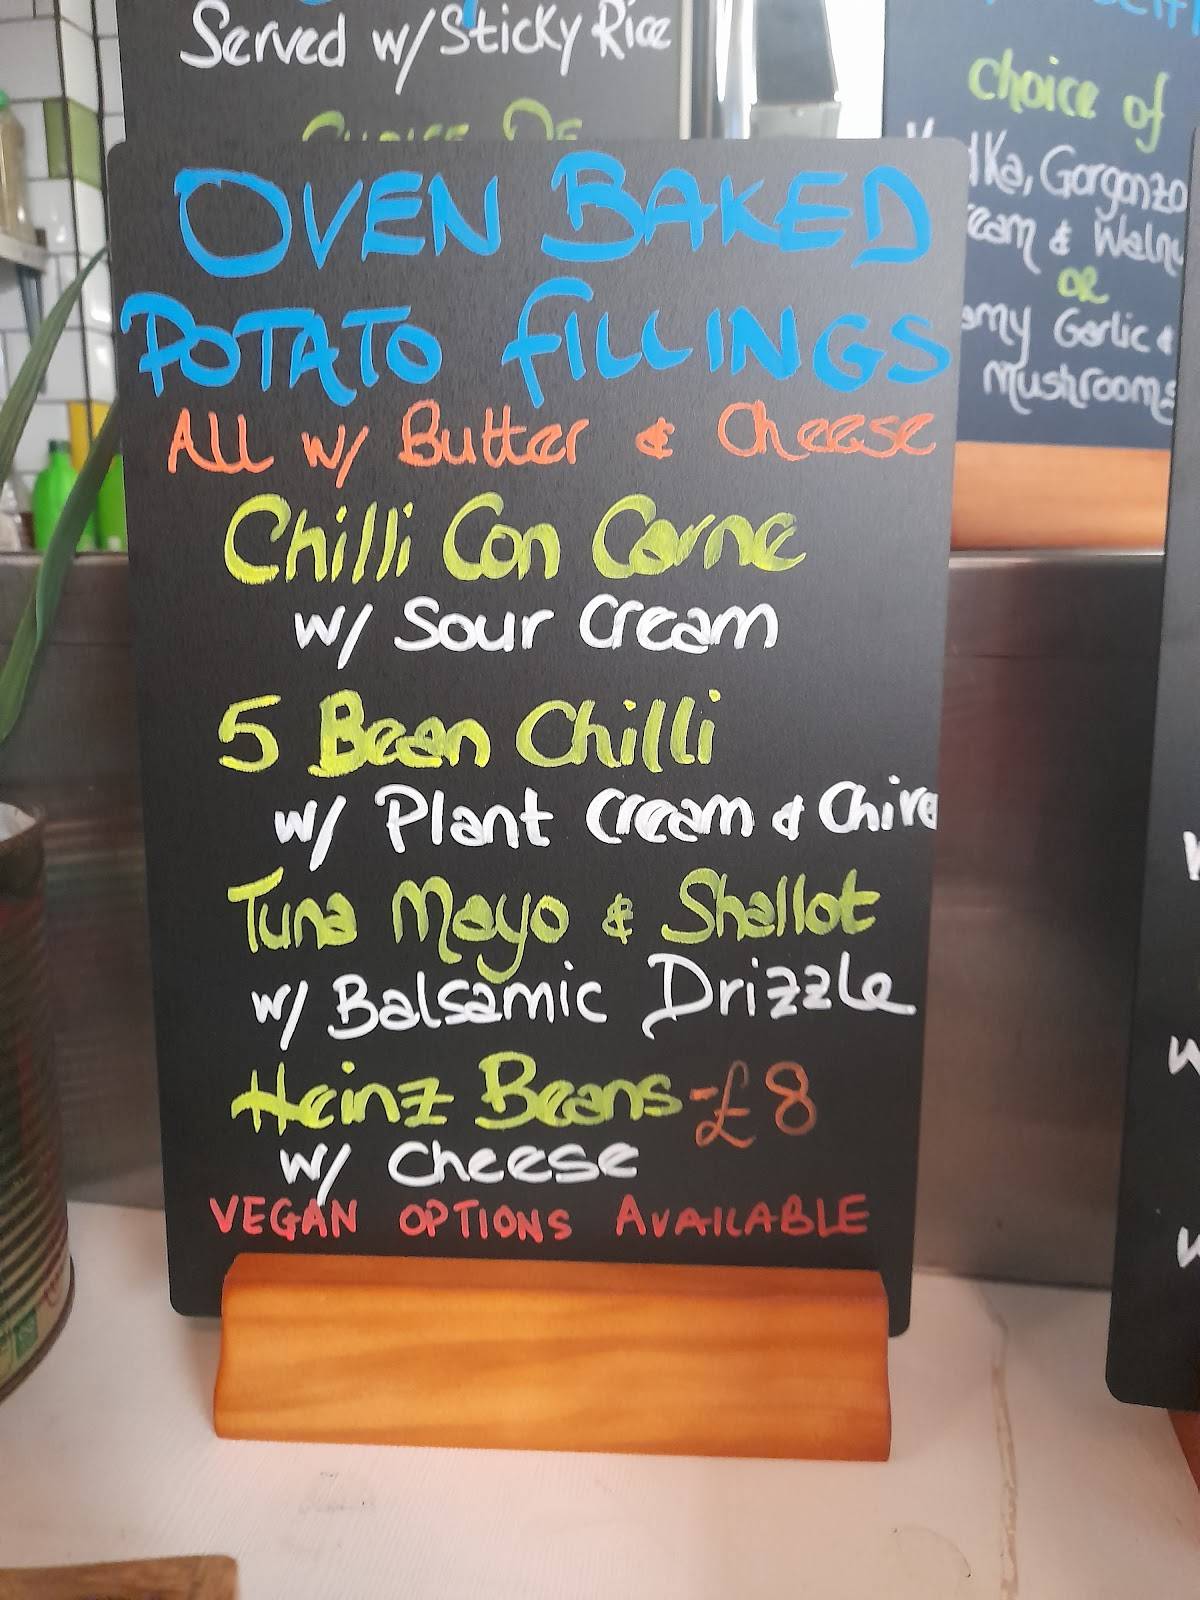 Served w/ Sticky Rice
CHOICE OF
OVEN BAKED
POTATO FILLINGS
All w/ Butter & Cheese
Chilli Con Carne
w/ Sour Cream
5 Bean Chilli
w/ Plant Cream & Chive
Tuna Mayo & Shallot
w/ Balsamic Drizzle
Heinz Beans -£8
w/ Cheese
VEGAN OPTIONS AVAILABLE
Choice of
dka, Gorgonzo
eam & Walnu
or
amy Garlic &
Mushrooms